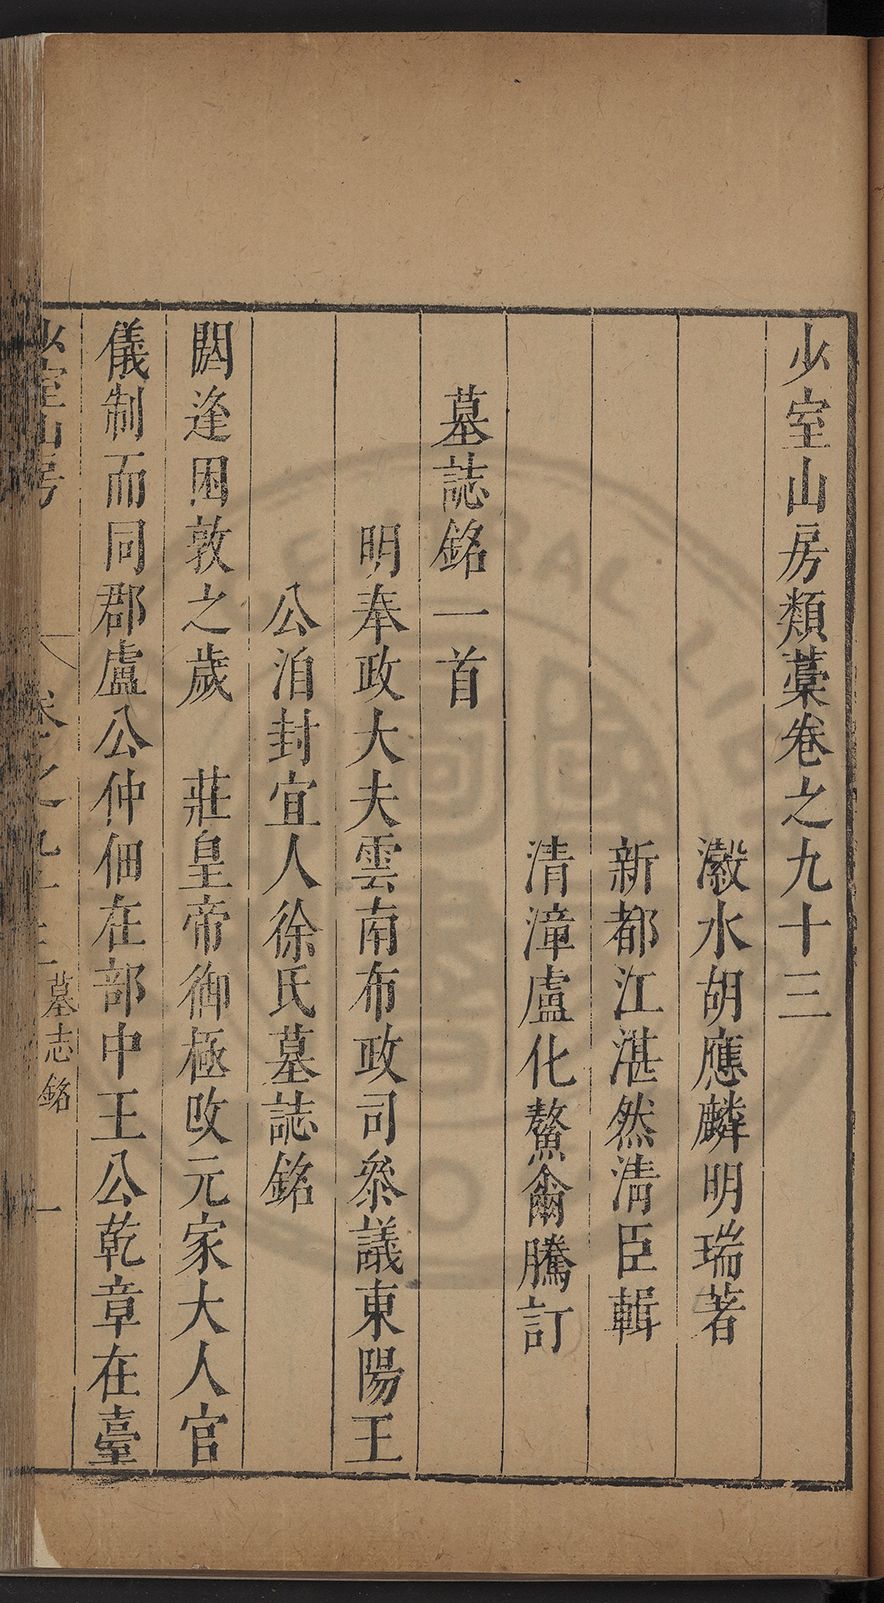 少室山房類藁卷之九十三
瀫水胡應麟明瑞著
新都江湛然清臣輯
清漳盧化鰲爾騰訂
墓誌銘一首
明奉政大夫雲南布政司叅議東陽王
公洎封宜人徐氏墓誌銘
閼逢困敦之歲　莊皇帝御極改元家大人官
儀制而同郡盧公仲佃在部中王公乾章在臺
少室山房　卷之九十三　墓志銘　一